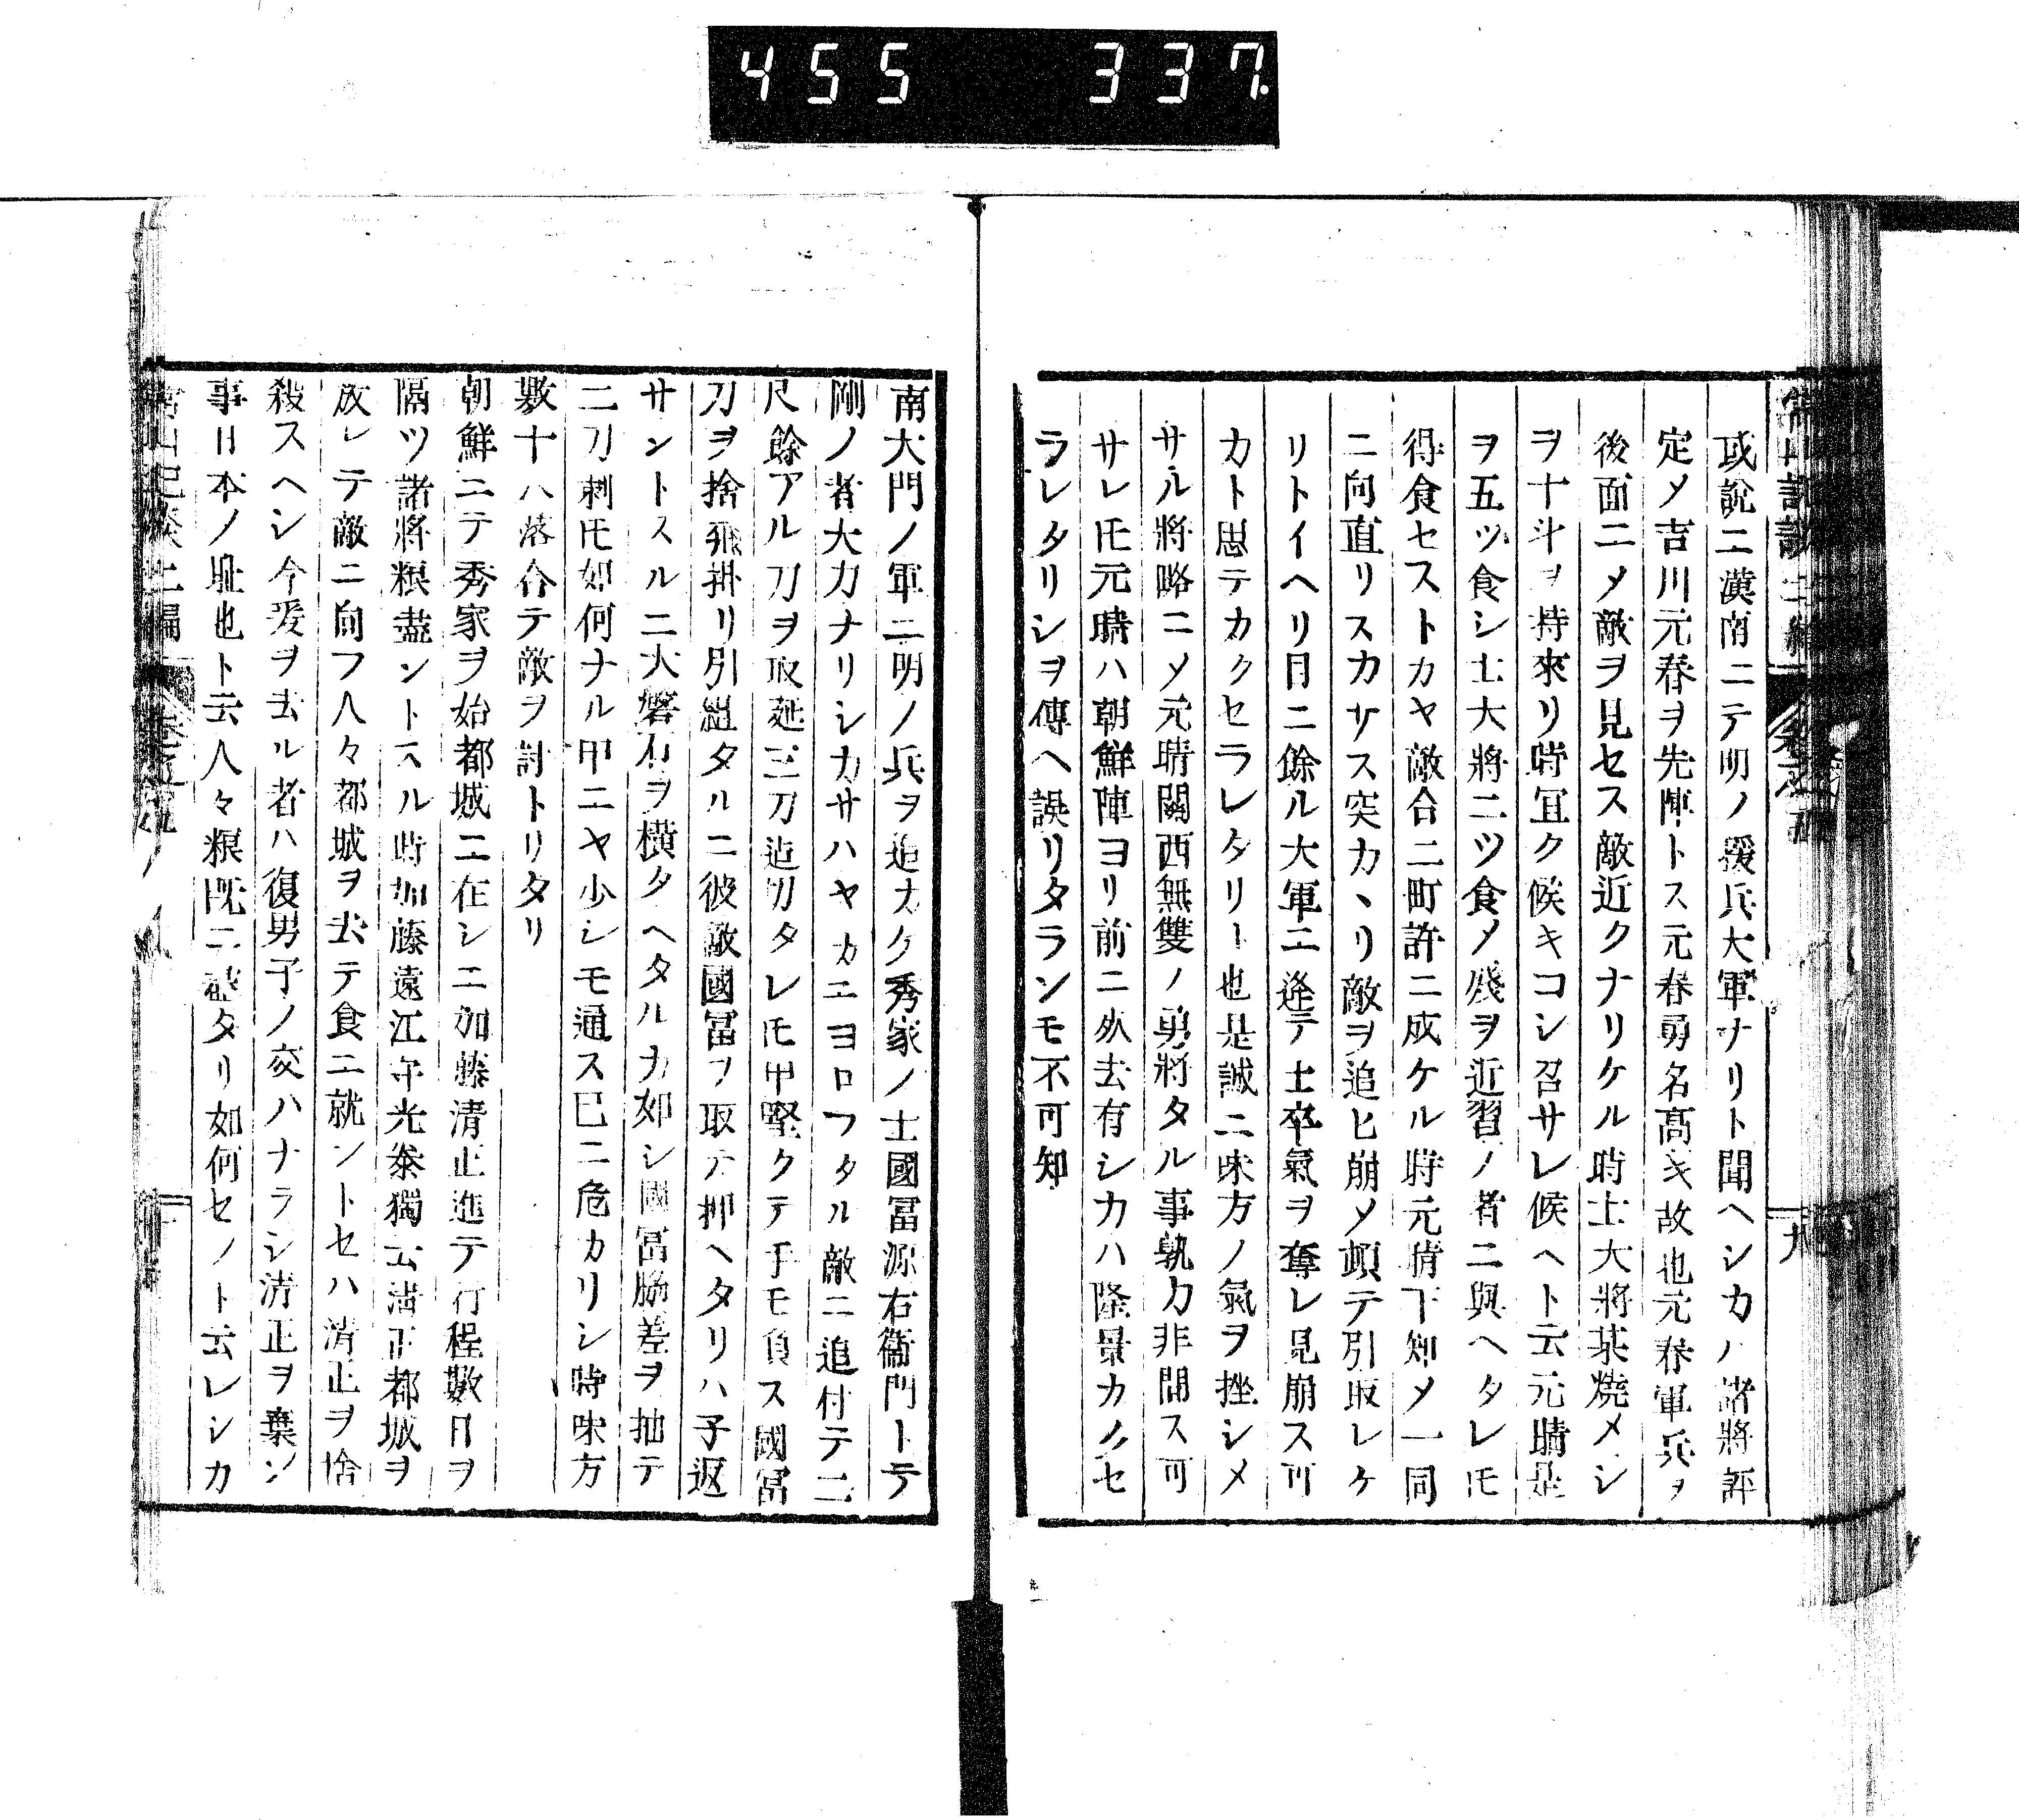 455 337
或說ニ漢南ニテ明ノ援兵大軍ナリト聞ヘシカハ諸將評
定メ吉川元春ヲ先陣トス元春勇名髙キ故也元春軍兵ヲ
後面ニメ敵ヲ見セス敵近クナリケル時士大將某焼メシ
ヲ十斗ヲ持來リ時冝ク候キコシ召サレ候ヘト云元晴是
ヲ五ツ食シ士大將二ツ食メ殘ヲ近習ノ者ニ與ヘタレ𪜈
得食セストカヤ敵合二町許ニ成ケル時元晴下知メ一同
ニ向直リスカサス突カヽリ敵ヲ追ヒ崩メ頓テ引取レケ
リトイヘリ目ニ餘ル大軍ニ逢テ士卒氣ヲ奪レ見崩ス可
カト思テカクセラレタリト也是誠ニ味方ノ氣ヲ挫シメ
サル將略ニメ元晴關西無雙ノ勇將タル事孰カ非間ス可
サレ𪜈元晴ハ朝鮮陣ヨリ前ニ死去有シカハ隆景カクセ
ラレタリシヲ傳ヘ誤リタランモ不可知
南大門ノ軍ニ明ノ兵ヲ追ナク秀家ノ士國冨源右衞門トテ
剛ノ者大力ナリシカサハヤカニヨロフタル敵ニ追付テ二
尺餘アル刀ヲ取延三刀迠切タレ𪜈甲堅クテ手モ負ス國冨
刀ヲ捨飛掛リ引組タルニ彼敵國冨ヲ取テ押ヘタリハ子返
サントスルニ大磐石ヲ横タヘタルカ如シ國冨脇差ヲ抽テ
二刀刺𪜈如何ナル甲ニヤ少シモ通ス已ニ危カリシ時味方
數十人落合テ敵ヲ討トリタリ
朝鮮ニテ秀家ヲ始都城ニ在シニ加藤清正進テ行程數日ヲ
隔ツ諸將粮盡ントスル時加藤遠江守光泰獨云清正都城ヲ
放レテ敵ニ向フ人々都城ヲ去テ食ニ就ントセハ清正ヲ捨
殺スヘシ今爰ヲ去ル者ハ復男子ノ交ハナラシ清正ヲ棄ン
事日本ノ耻也ト云人々粮既ニ盡タリ如何セントー云レシカ